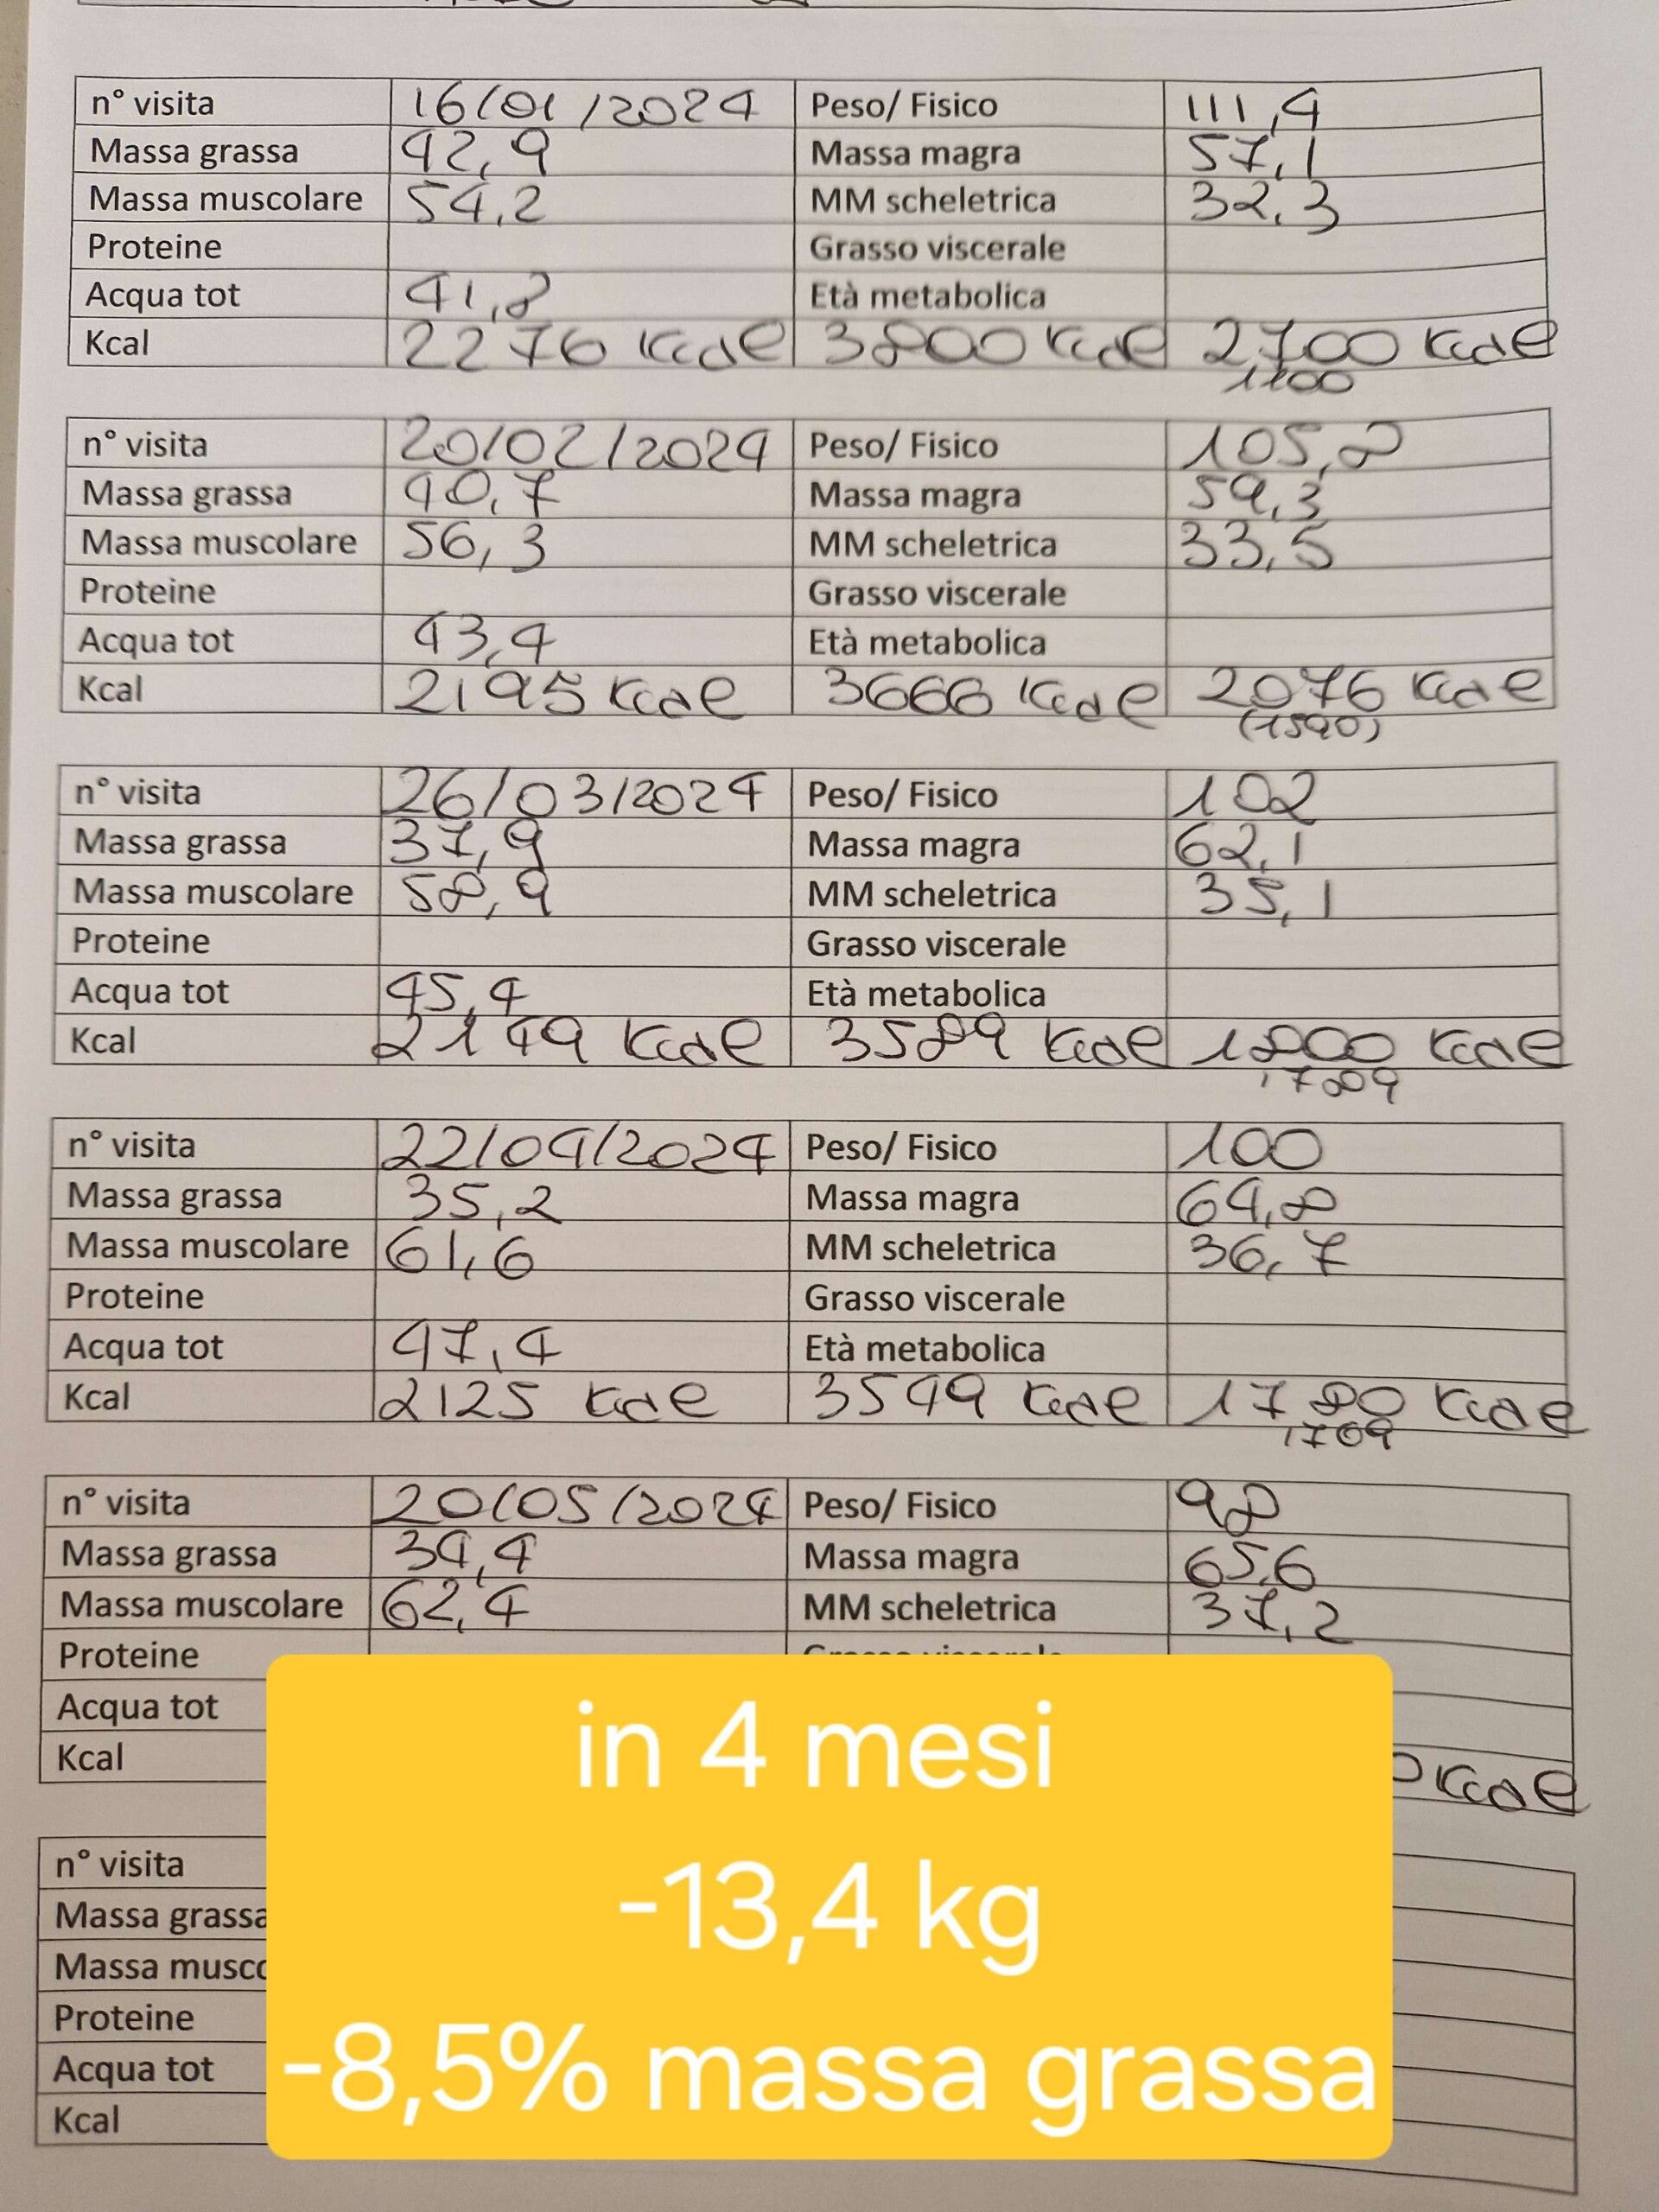 n° visita 16/01/2024 Peso/ Fisico 111,4
Massa grassa 42,9 Massa magra 57,1
Massa muscolare 54,2 MM scheletrica 32,3
Proteine Grasso viscerale
Acqua tot 41,8 Età metabolica
Kcal 2276 kcal 3800 kcal 2700 kcal
1100
n° visita 20/02/2024 Peso/ Fisico 105,8
Massa grassa 40,7 Massa magra 59,3
Massa muscolare 56,3 MM scheletrica 33,5
Proteine Grasso viscerale
Acqua tot 43,4 Età metabolica
Kcal 2195 kcal 3666 kcal 2076 kcal
(1590)
n° visita 26/03/2024 Peso/ Fisico 102
Massa grassa 37,9 Massa magra 62,1
Massa muscolare 58,9 MM scheletrica 35,1
Proteine Grasso viscerale
Acqua tot 45,4 Età metabolica
Kcal 2149 kcal 3589 kcal 1800 kcal
1789
n° visita 22/04/2024 Peso/ Fisico 100
Massa grassa 35,2 Massa magra 64,8
Massa muscolare 61,6 MM scheletrica 36,7
Proteine Grasso viscerale
Acqua tot 47,4 Età metabolica
Kcal 2125 kcal 3549 kcal 1780 kcal
1769
n° visita 20/05/2024 Peso/ Fisico 98
Massa grassa 34,4 Massa magra 65,6
Massa muscolare 62,4 MM scheletrica 37,2
Proteine
Acqua tot
Kcal kcal
n° visita
Massa grassa
Massa musco
Proteine
Acqua tot
Kcal
in 4 mesi
-13,4 kg
-8,5% massa grassa